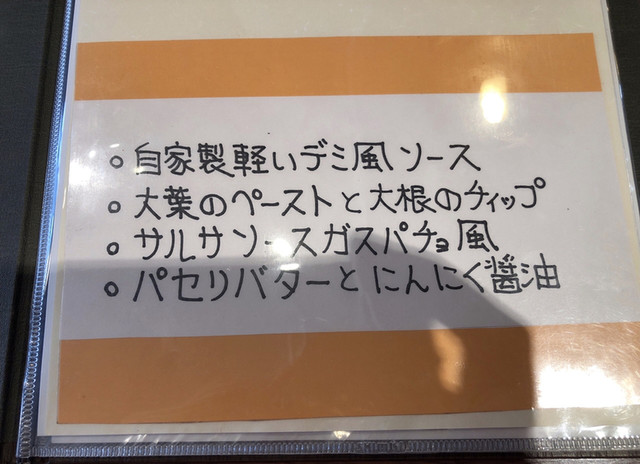 ○ 自家製軽いデミ風ソース
○ 大葉のペーストと大根のチップ
○ サルサソースガスパチョ風
○ パセリバターとにんにく醤油